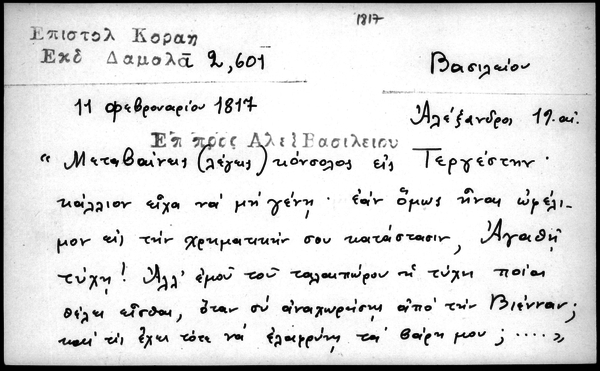 1817
Επιστολ Κοραη
Εκδ Δαμαλᾶ 2,601
Βασιλείου
11 φεβρουαρίου 1817
Ἀλέξανδρος 19. αἰ.
Επ προς Αλεξ Βασιλειου
« Μεταβαίνεις (λέγεις) κόνσολος εἰς Τεργέστην·
κάλλιον εἶχα νὰ μὴ γένῃ· ἐὰν ὅμως ἦναι ὠφέλι-
μον εἰς τὴν χρηματικήν σου κατάστασιν, Ἀγαθῇ
τύχῃ! Ἀλλ' ἐμοῦ τοῦ ταλαιπώρου ἡ τύχη ποία
θέλει εἶσθαι, ὅταν σὺ ἀναχωρήσῃς ἀπὸ τὴν Βιένναν;
καὶ τίς ἔχει τότε νὰ ἐλαφρύνῃ τὰ βάρη μου; ....»